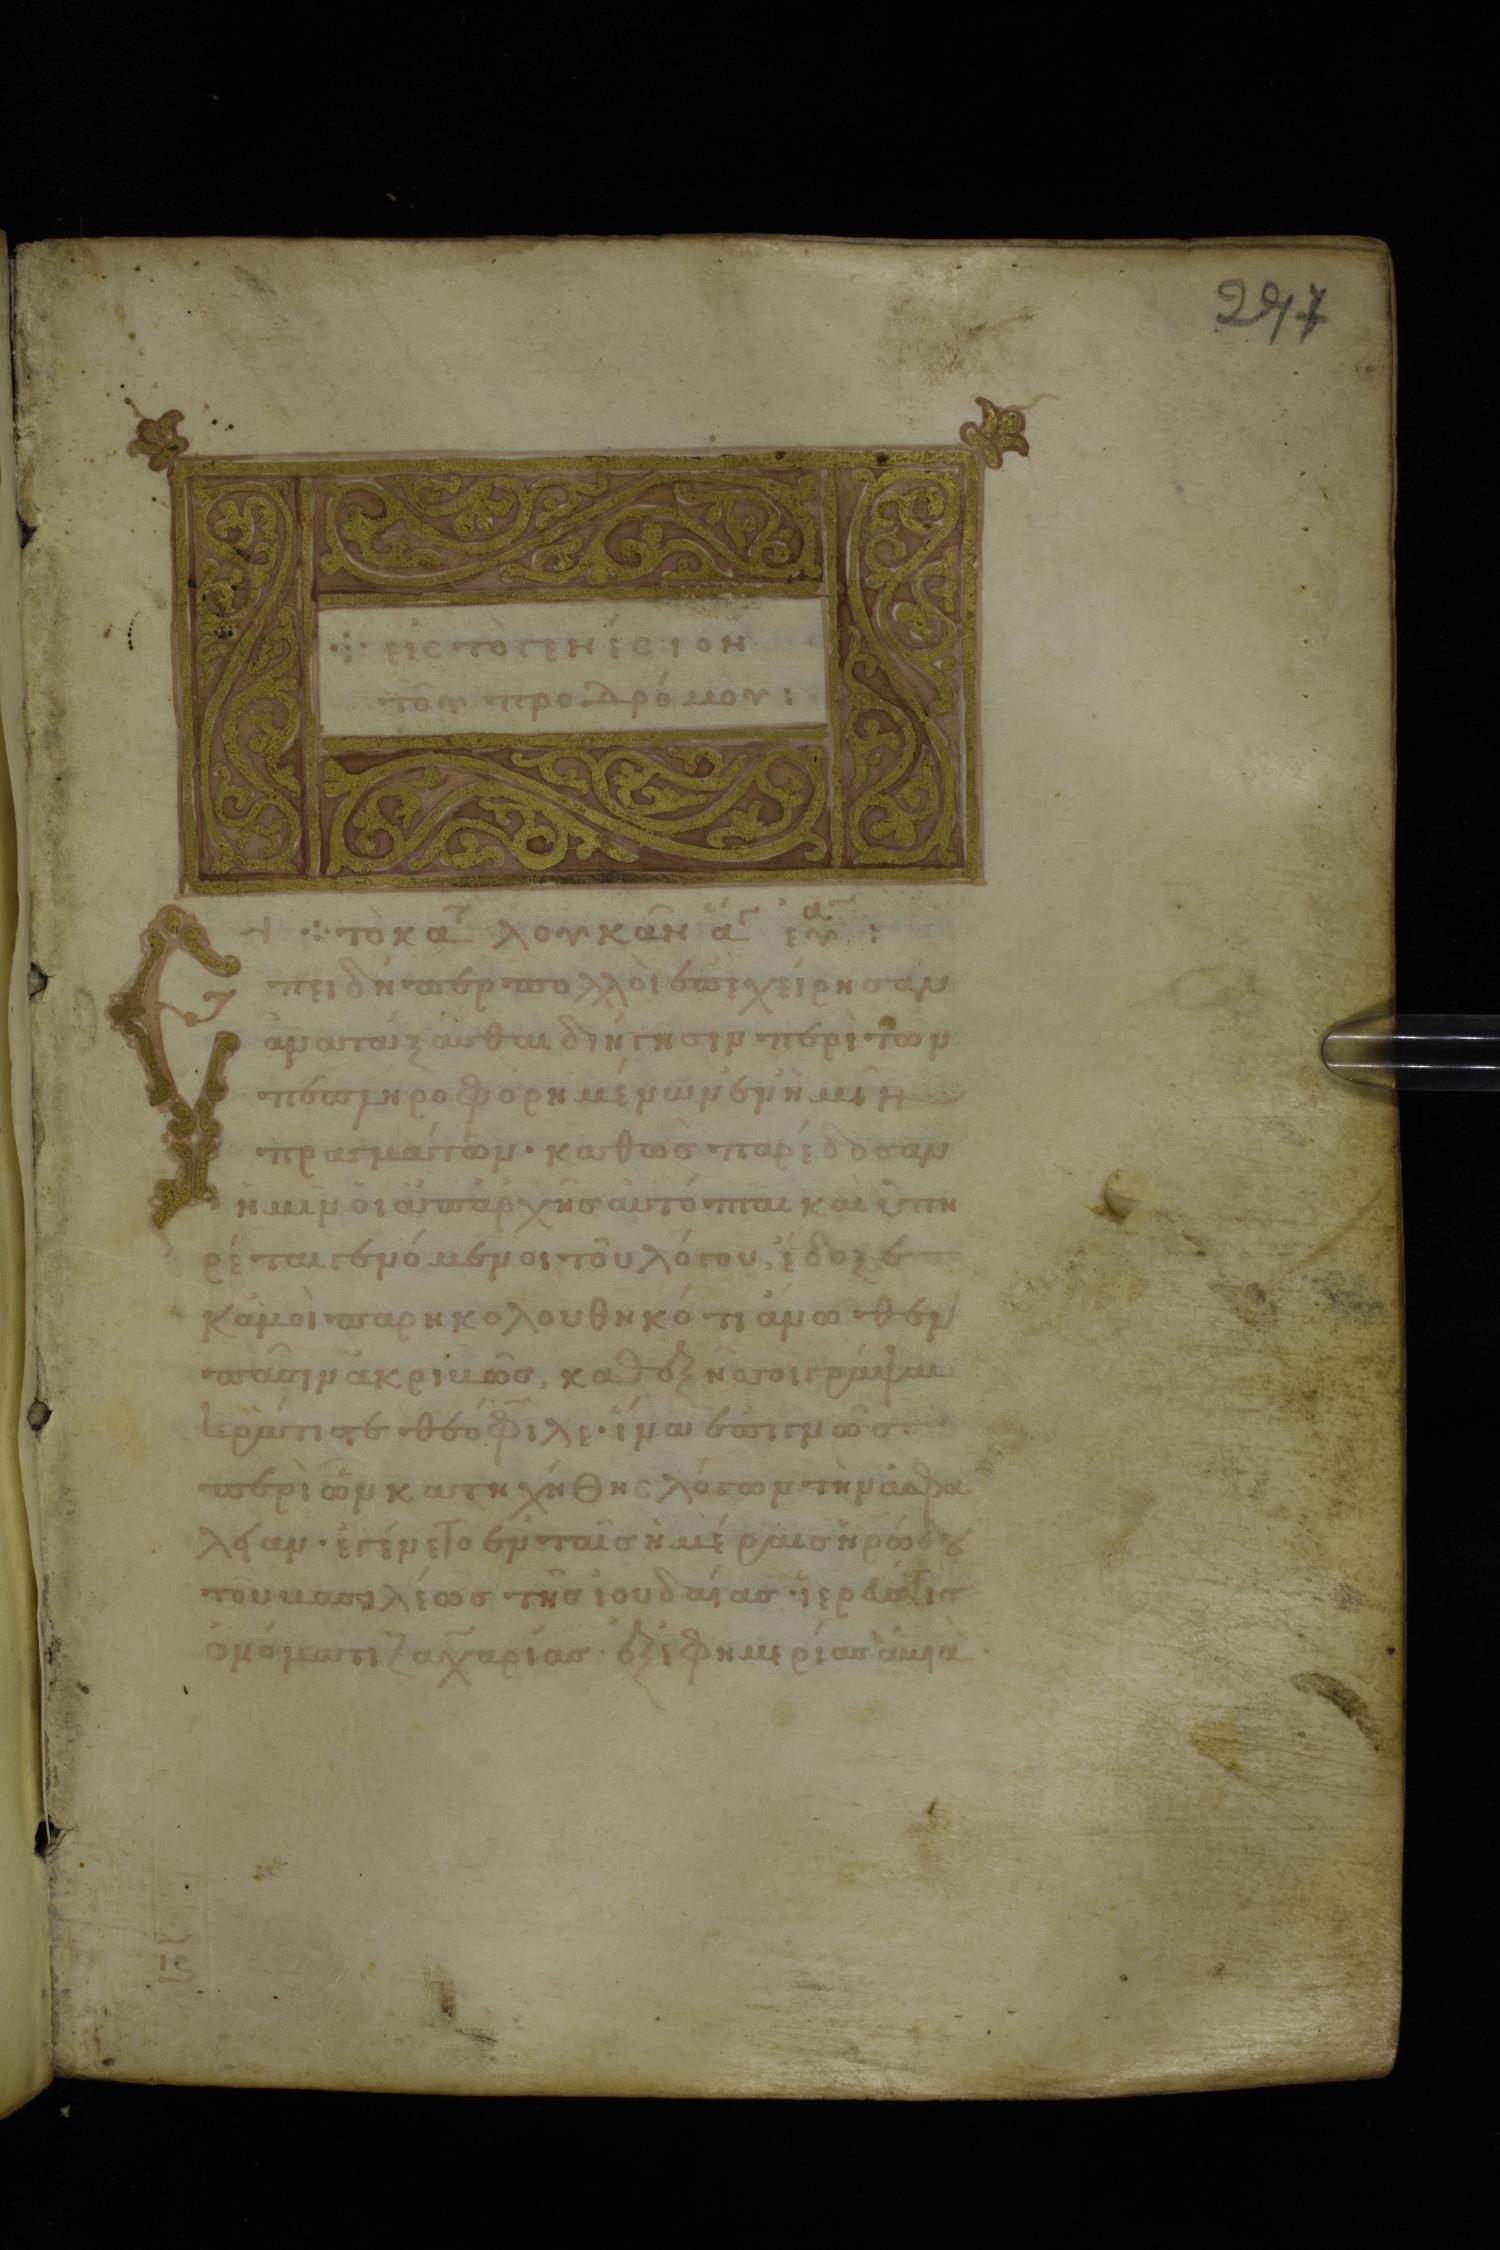 297
·:· εἰς τὸ γενέσιον
τοῦ προδρόμου:
·:· τὸ κατ λουκᾶν ἅγ εὐα :
Επειδήπερ πολλὸι ἐπεχείρησαν
ἀναταξασθαι διήγησιν περὶ τῶν
πεπληροφορημένων ἐν ἡμῖν
πραγμάτων· καθὼς παρέδοσαν
ἡμῖν ὁι ἀπαρχῆς ἀυτόπται καὶ ὑπη
ρέται γενόμενοι τοῦ λόγου, ἔδοξε
κἀμοὶ παρηκολουθηκότι ἄνωθεν
πᾶσιν ἀκριβῶς, καθεξῆς σοι γράψαι
κράτιστε θεόφιλε· ἵνα ἐπιγνῶς
περὶ ὧν κατηχήθης λόγων τὴν ἀσφα
λειαν· ἐγένετο ἐν ταῖς ἡμέραις ἡρώδου
τοῦ βασιλέως τῆς ἰουδαίας· ἱερεύς τις
ὀνόματι ζαχαρίας· ἐξ ἐφημερίας ἀβιὰ·
ις